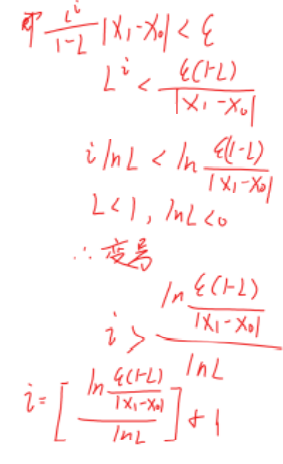 即 \frac{L^i}{1-L} |x_1-x_0| < ε
L^i < \frac{ε(1-L)}{|x_1-x_0|}
i ln L < ln \frac{ε(1-L)}{|x_1-x_0|}
L<1, ln L<0
∴ 变号
i > \frac{ln \frac{ε(1-L)}{|x_1-x_0|}}{ln L}
i = [\frac{ln \frac{ε(1-L)}{|x_1-x_0|}}{ln L}] + 1